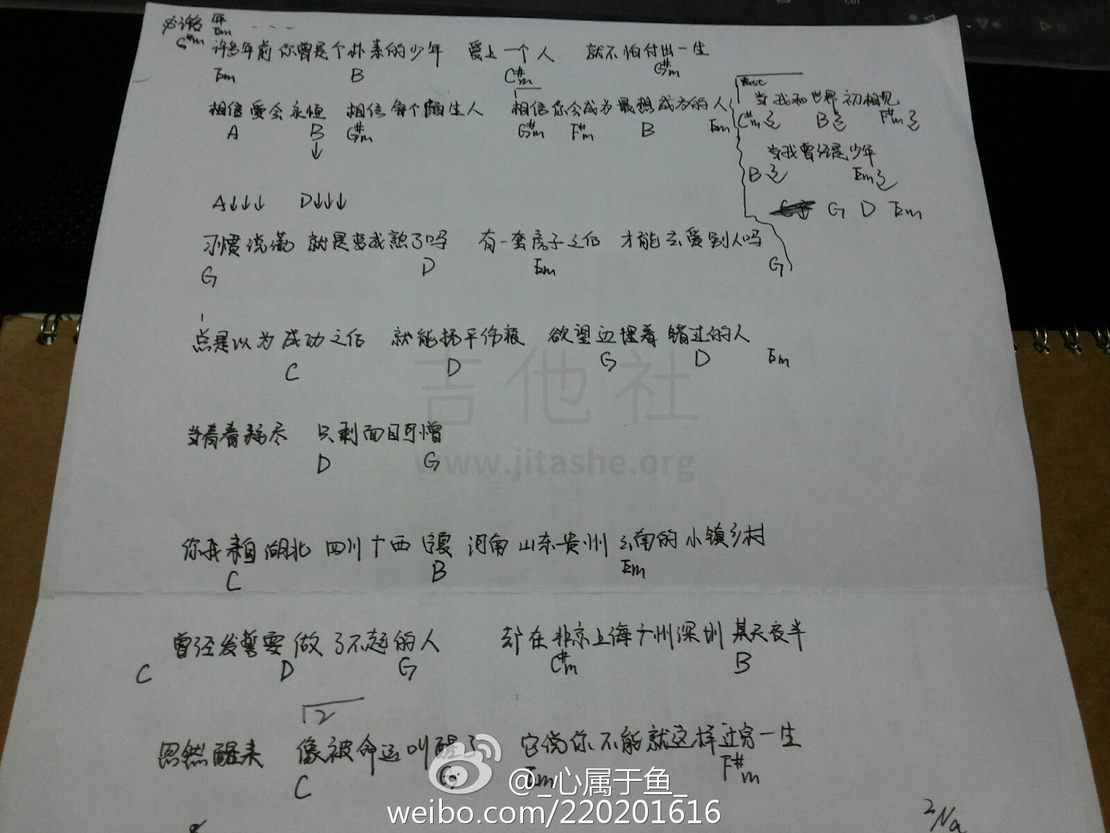 许多年 ...
Em
G#m
许多年前 你曾是个朴素的少年 爱上一个人 就不怕付出一生
Em B C#m G#m
相信爱会永恒 相信每个陌生人 相信你会成为最想成为的人
A B G#m G#m F#m B Em
↓
当我和世界初相见
C#m B F#m
当我曾经是少年
B Em
G D Em
A↓↓↓ D↓↓↓
习惯说谎 就是变成熟了吗 有一套房子之后 才能去爱别人吗
G D Em G
总是以为成功之后 就能抚平伤痕 欲望边埋着错过的人
C D G D Em
当青春耗尽 只剩面目可憎
D G
你我来自湖北 四川 广西 宁夏 河南 山东 贵州 云南的小镇乡村
C B Em
曾经发誓要做了不起的人 却在北京上海广州深圳 某天夜半
C D G C#m B
2
忽然醒来 像被命运叫醒了 它说你不能就这样过完一生
C G Em F#m
吉他社
www.jitashe.org
@_心属于鱼_
weibo.com/220201616